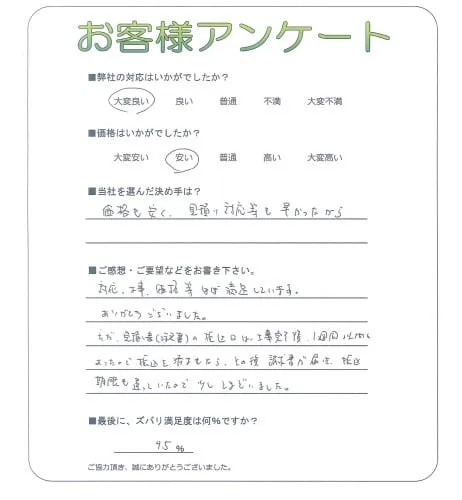 お客様アンケート
■弊社の対応はいかがでしたか?
大変良い 良い 普通 不満 大変不満
■価格はいかがでしたか?
大変安い 安い 普通 高い 大変高い
■当社を選んだ決め手は?
価格も安く、見積り対応等も早かったから
■ご感想・ご要望などをお書き下さい。
対応、工事、価格等ほぼ満足しています。
ありがとうございました。
ただ、見積書(請書)の振込日は、工事完了後、1週間以内と
あったので振込を済ませたら、その後請求書が届き、振込
期限も違っていたので少しとまどいました。
■最後に、ズバリ満足度は何%ですか?
95%
ご協力頂き、誠にありがとうございました。